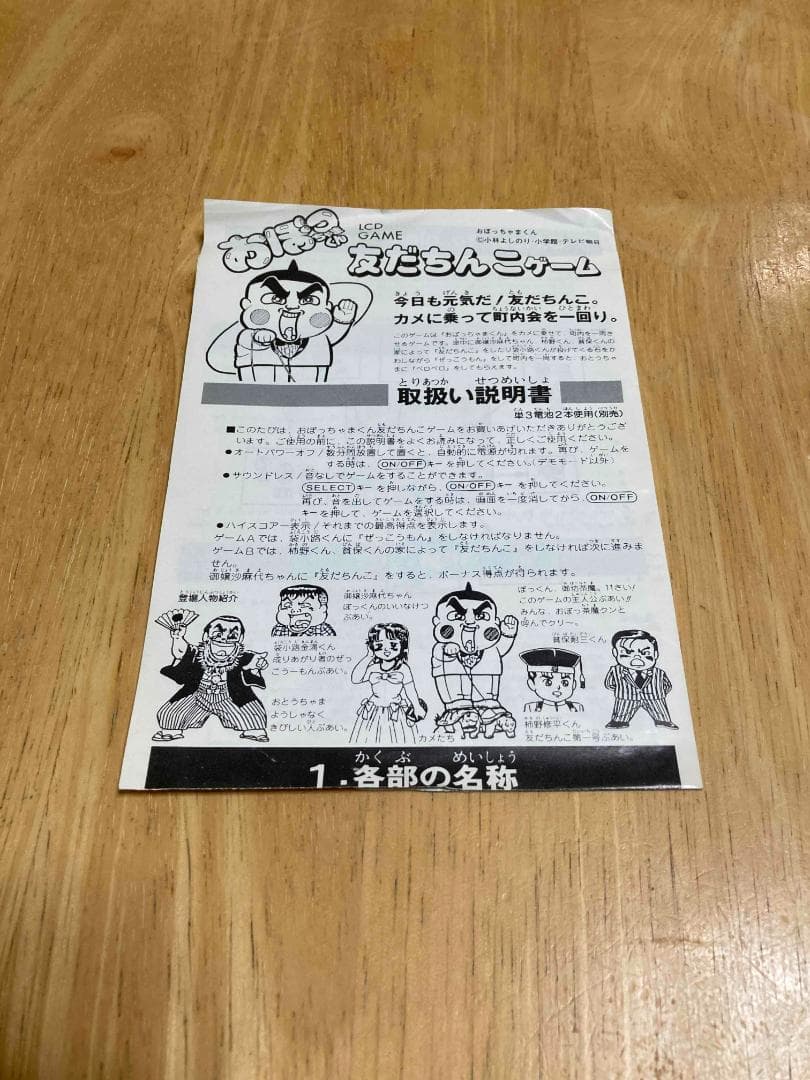 おぼっちゃまくん
LCD
GAME
おぼっちゃまくん
©小林よしのり・小学館・テレビ朝日
友だちんこゲーム
今日も元気だ！友だちんこ。
カメに乗って町内会を一回り。
このゲームは『おぼっちゃまくん』をカメに乗せて、町内を一周さ
せるゲームです。途中に御嬢沙麻代ちゃん、柿野くん、貧保くんの
家によって『友だちんこ』をしたり袋小路くんが投げてくる石をか
わしながら『ぜっこうもん』をして町内を一周すると、おとうちゃ
まに『ベロベロ』をしてもらえます。
取扱い説明書
単3電池2本使用(別売)
■このたびは、おぼっちゃまくん友だちんこゲームをお買いあげいただきありがとうござ
います。ご使用の前に、この説明書をよくお読みになって、正しくご使用ください。
●オートパワーオフ/数分間放置して置くと、自動的に電源が切れます。再び、ゲームを
する時は、ON/OFFキーを押してください。(デモモード以外)
●サウンドレス/音なしでゲームをすることができます。
SELECTキーを押しながら、ON/OFFキーを押してください。
再び、音を出してゲームをする時は、画面を一度消してから、ON/OFF
キーを押して、ゲームを選択してください。
●ハイスコアー表示/それまでの最高得点を表示します。
ゲームAでは、袋小路くんに『ぜっこうもん』をしなければなりません。
ゲームBでは、柿野くん、貧保くんの家によって『友だちんこ』をしなければ次に進みま
せん。
御嬢沙麻代ちゃんに『友だちんこ』をすると、ボーナス得点が得られます。
登場人物紹介
袋小路金満くん
成りあがり者のぜっ
こうーもんぶぁい。
御嬢沙麻代ちゃん
ぼっくんのいいなけつ
ぶぁい。
ぼっくん、御坊茶魔。11さい！
このゲームの主人公ぶぁい!!
みんな、おぼっ茶魔クンと
呼んでクリー。
貧保耐三くん
おとうちゃま
ようしゃなく
きびしい人ぶぁい。
カメたち
柿野修平くん
友だちんこ第一号ぶぁい。
1.各部の名称